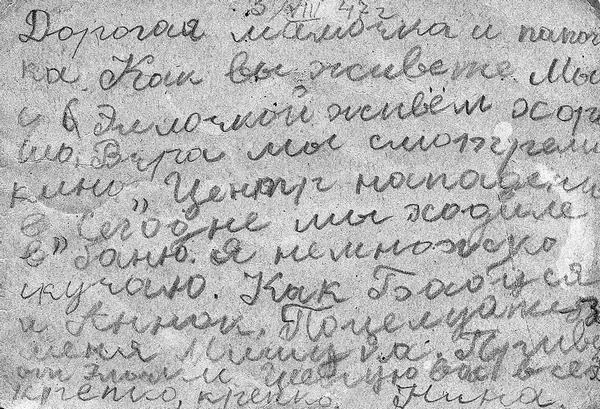 3 VIII 42г
Дорогая мамочка и папоч
ка. Как вы живете. Мы
с Эллочкой живём хоро
шо. Вчера мы смотрели
кино „Центр нападени
я“ Сегодне мы ходиле
в баню. Я немножко
скучаю. Как Бабуся
и Аннок. Поцелуйте за
меня Мишука.
от Эллы и Целую вас всех
крепко, крепко. Нина.